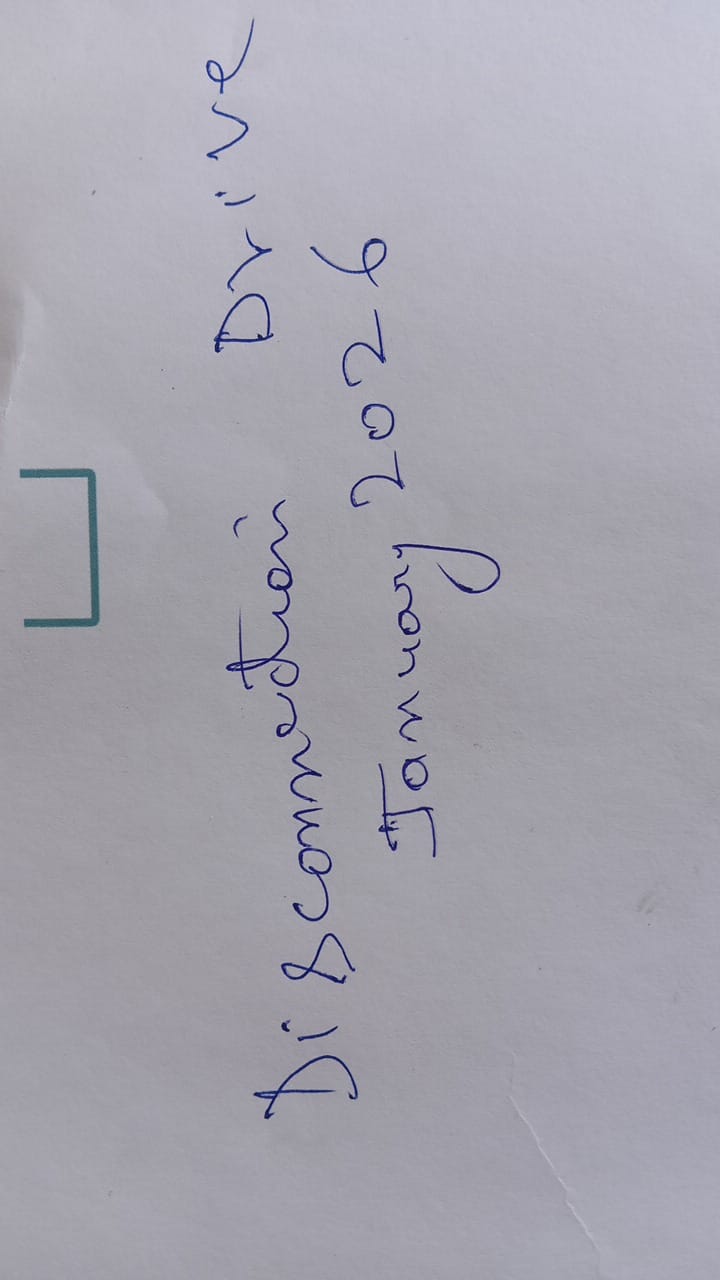 Disconnection Drive
January 2026